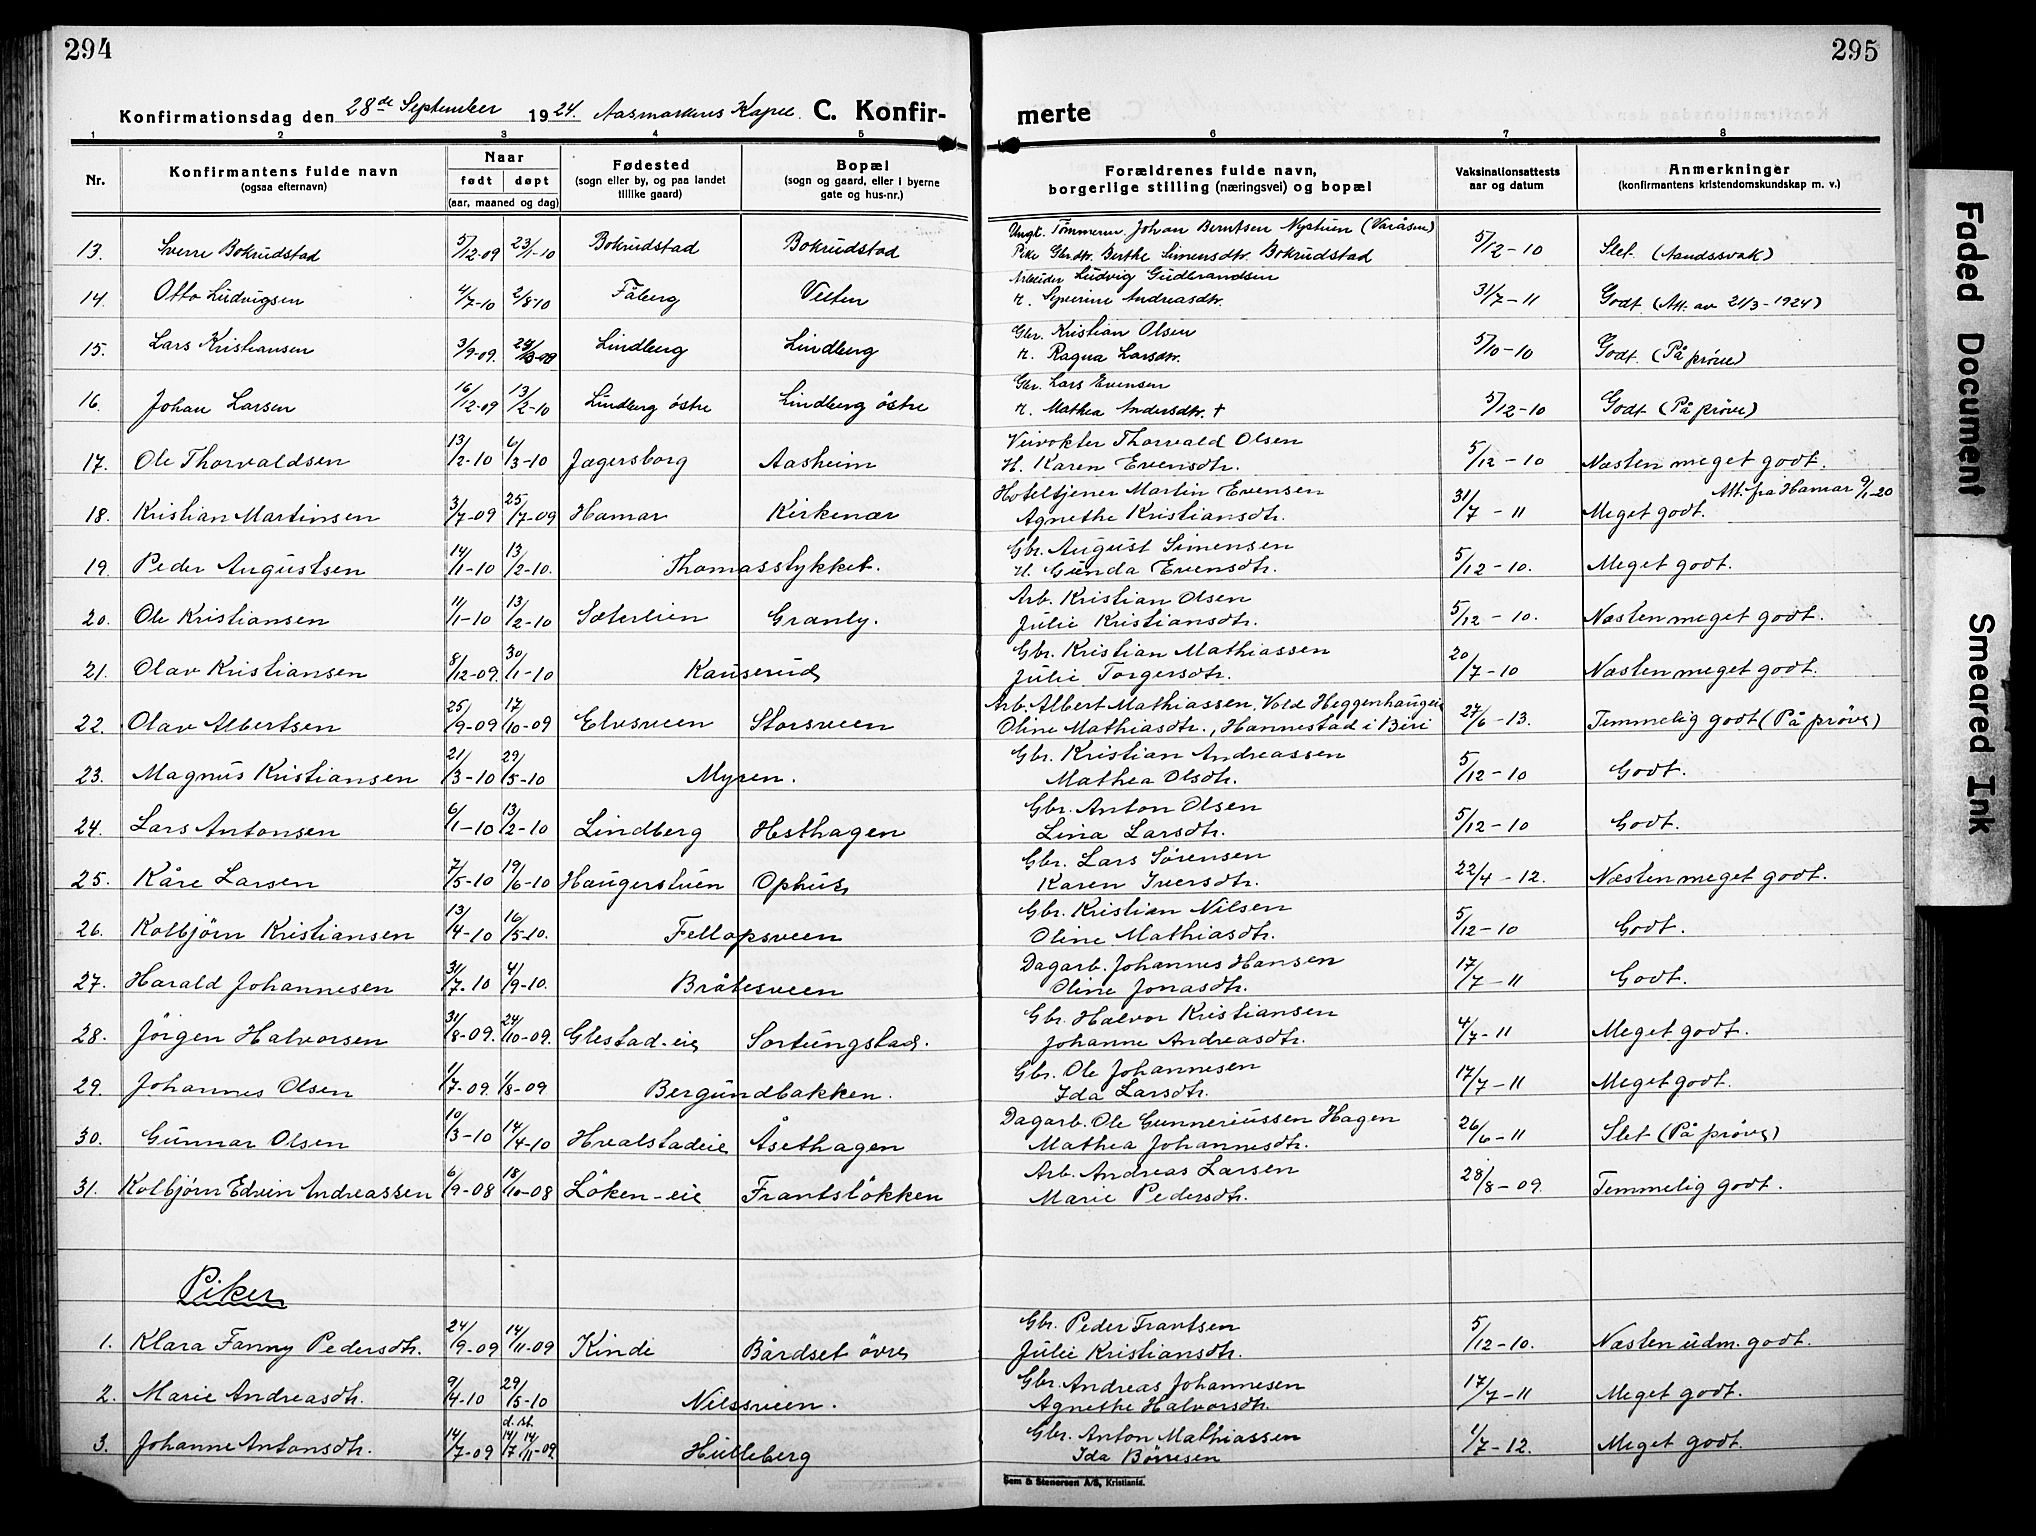 294
295
Konfirmationsdag den 28de September 1924. Aasmarkens Kapel. C. Konfir-
merte
1 2 3 4 5 6 7 8
Nr. Konfirmantens fulde navn (ogsaa efternavn) Naar født døpt (aar, maaned og dag) Fødested (sogn eller by, og paa landet tillike gaard) Bopæl (sogn og gaard, eller i byerne gate og hus-nr.) Forældrenes fulde navn, borgerlige stilling (næringsvei) og bopæl Vaksinationsattests aar og datum Anmerkninger (konfirmantens kristendomskundskap m. v.)
13. Sverre Bokrudstad 5/12-09 23/1-10 Bokrudstad Bokrudstad Ungk. Tømmerm. Johan Berntsen Nystuen (Varåsen)
Pike Gbrdtr. Berthe Simensdtr. Bokrudstad 5/12-10 Slet. (Aandssvak)
14. Otto Ludvigsen 4/7-10 2/8-10 Fåberg Velten Arbeider Ludvig Gudbrandsen
H. Severine Andreasdtr. 31/7-11 Godt (Att. av 21/3-1924)
15. Lars Kristiansen 3/9-09. Lindberg Lindberg Gbr. Kristian Olsen
H. Ragna Larsdtr. 5/10-10 Godt. (På prøve)
16. Johan Larsen 16/12-09 13/2-10 Lindberg østre Lindberg østre Gbr. Lars Evensen
H. Mathea Andersdtr. † 5/12-10 Godt (På prøve)
17. Ole Thorvaldsen 13/2-10 6/3-10 Jægersborg Aasheim Veivokter Thorvald Olsen
H. Karen Evensdtr. 5/12-10 Næsten meget godt.
18. Kristian Martinsen 3/7-09 25/7-09 Hamar Kirkenær Hoteltjener Martin Evensen
Agnethe Kristiansdtr. 31/7-11 Meget godt. Att. fra Hamar 9/1-20
19. Peder Augustsen 14/1-10 13/2-10. Thomasstykket. Gbr. August Simensen
H. Gunda Evensdtr. 5/12-10. Meget godt.
20. Ole Kristiansen 11/1-10 13/2-10 Sæterlien Granly. Arb. Kristian Olsen
Julie Kristiansdtr. 5/12-10. Næsten meget godt.
21. Olav Kristiansen 8/12-09. 30/1-10 Kauserud Gbr. Kristian Mathiassen
Julie Torgersdtr. 20/7-10 Næsten meget godt.
22. Olav Albertsen 25/9-09 17/10-09 Elvsveen Storsveen Arb. Albert Mathiassen, Vold Heggenhaugen
Oline Mathiasdtr., Hannestad i Biri 27/6-13. Temmelig godt (På prøve)
23. Magnus Kristiansen 21/3-10 29/5-10 Myren. Gbr. Kristian Andreassen
Mathea Olsdtr. 5/12-10 Godt.
24. Lars Antonsen 6/1-10 13/2-10 Lindberg Hesthagen Gbr. Anton Olsen
Lina Larsdtr. 5/12-10 Godt.
25. Kåre Larsen 7/5-10 19/6-10 Haugerstuen Ophus Gbr. Lars Sørensen
Karen Iversdtr. 22/4-12. Næsten meget godt.
26. Kolbjørn Kristiansen 13/4-10 16/5-10. Fellopsveen Gbr. Kristian Nilsen
Oline Mathiasdtr. 5/12-10 Godt.
27. Harald Johannesen 31/7-10 4/9-10. Bråtesveen Dagarb. Johannes Hansen
Oline Jonasdtr. 17/7-11 Godt.
28. Jörgen Halvorsen 31/8-09. 24/10-09. Glestad-eie Sortungstad. Gbr. Halvor Kristiansen
Johanne Andreasdtr. 4/7-11 Meget godt.
29. Johannes Olsen 1/7-09. 1/8-09 Bergundbakken. Gbr. Ole Johannesen
Ida Larsdtr. 17/7-11 Meget godt.
30. Gunnar Olsen 10/3-10 14/4-10 Hvalstadeie Åsethagen Dagarb. Ole Gunneriussen Hagen
Mathea Johannesdtr. 26/6-11 Slet (På prøve)
31. Kolbjørn Edvin Andreassen 6/9-08 18/10-08 Löken-eie Frantsløkken Arb. Andreas Larsen
Marie Pedersdtr. 28/8-09. Temmelig godt.
Piker
1. Klara Fanny Pedersdtr. 24/9-09 14/11-09 Kinde Bårdset øvre Gbr. Peder Frantsen
Julie Kristiansdtr. 5/12-10. Næsten udm. godt.
2. Marie Andreasdtr. 9/4-10 29/5-10 Nilssveen. Gbr. Andreas Johannesen
Agnethe Halvorsdtr. 17/7-11 Meget godt.
3. Johanne Antonsdtr. 14/7-09 d. st. 14/7 14/11-09 Hulleberg Gbr. Anton Mathiassen
Ida Børresen 1/7-12. Meget godt.
Sem & Stenersen A/S, Kristiania.
Faded Document
Smeared Ink